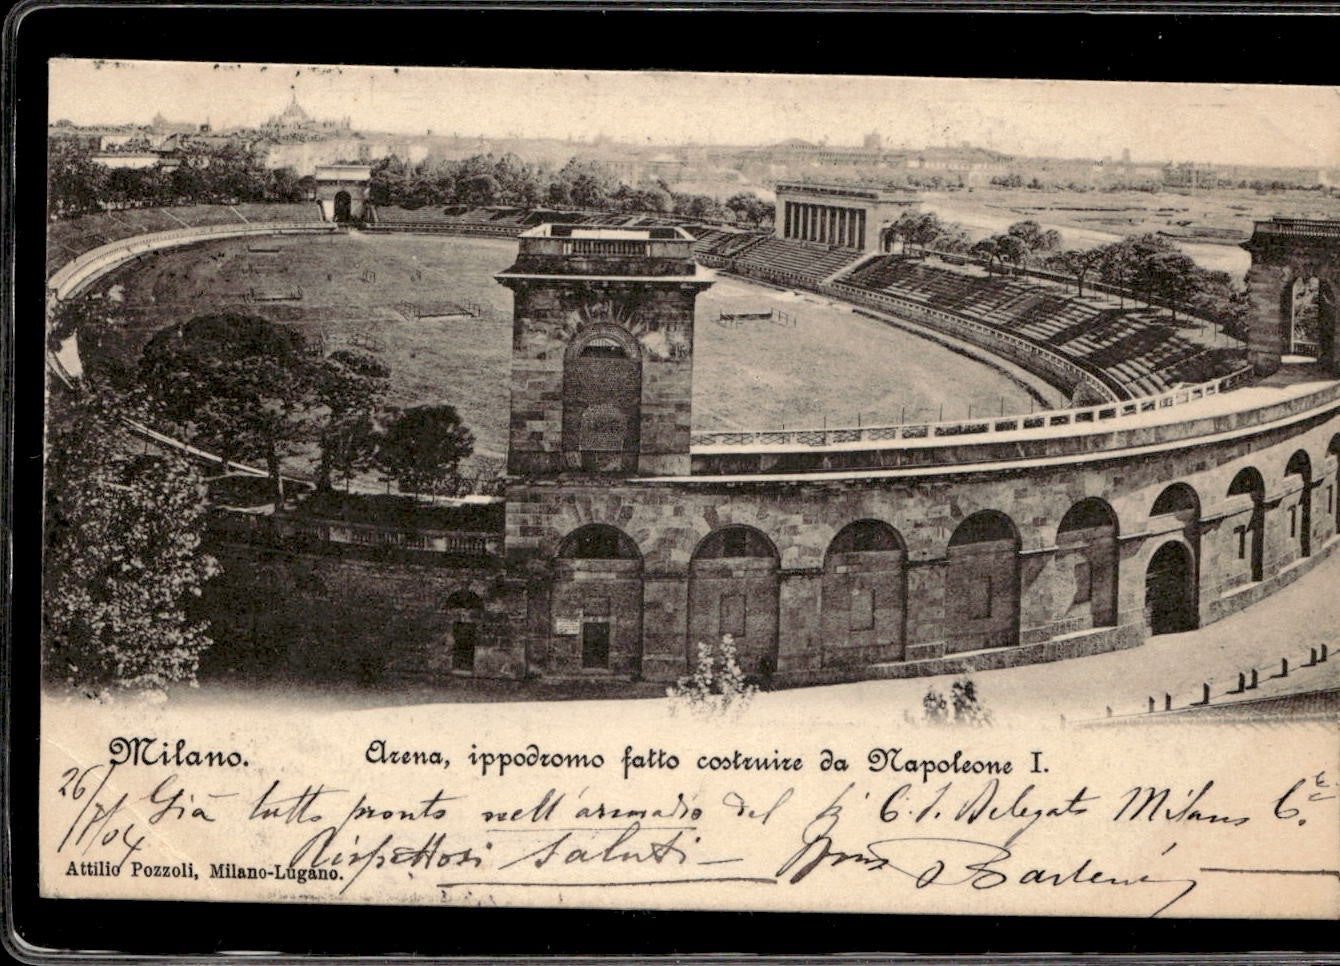 Milano. Arena, ippodromo fatto costruire da Napoleone I.
26/7/04 Già tutto pronto nell'armadio del C. I. Delegato Milano C.
Rispettosi Saluti —
Attilio Pozzoli, Milano-Lugano.